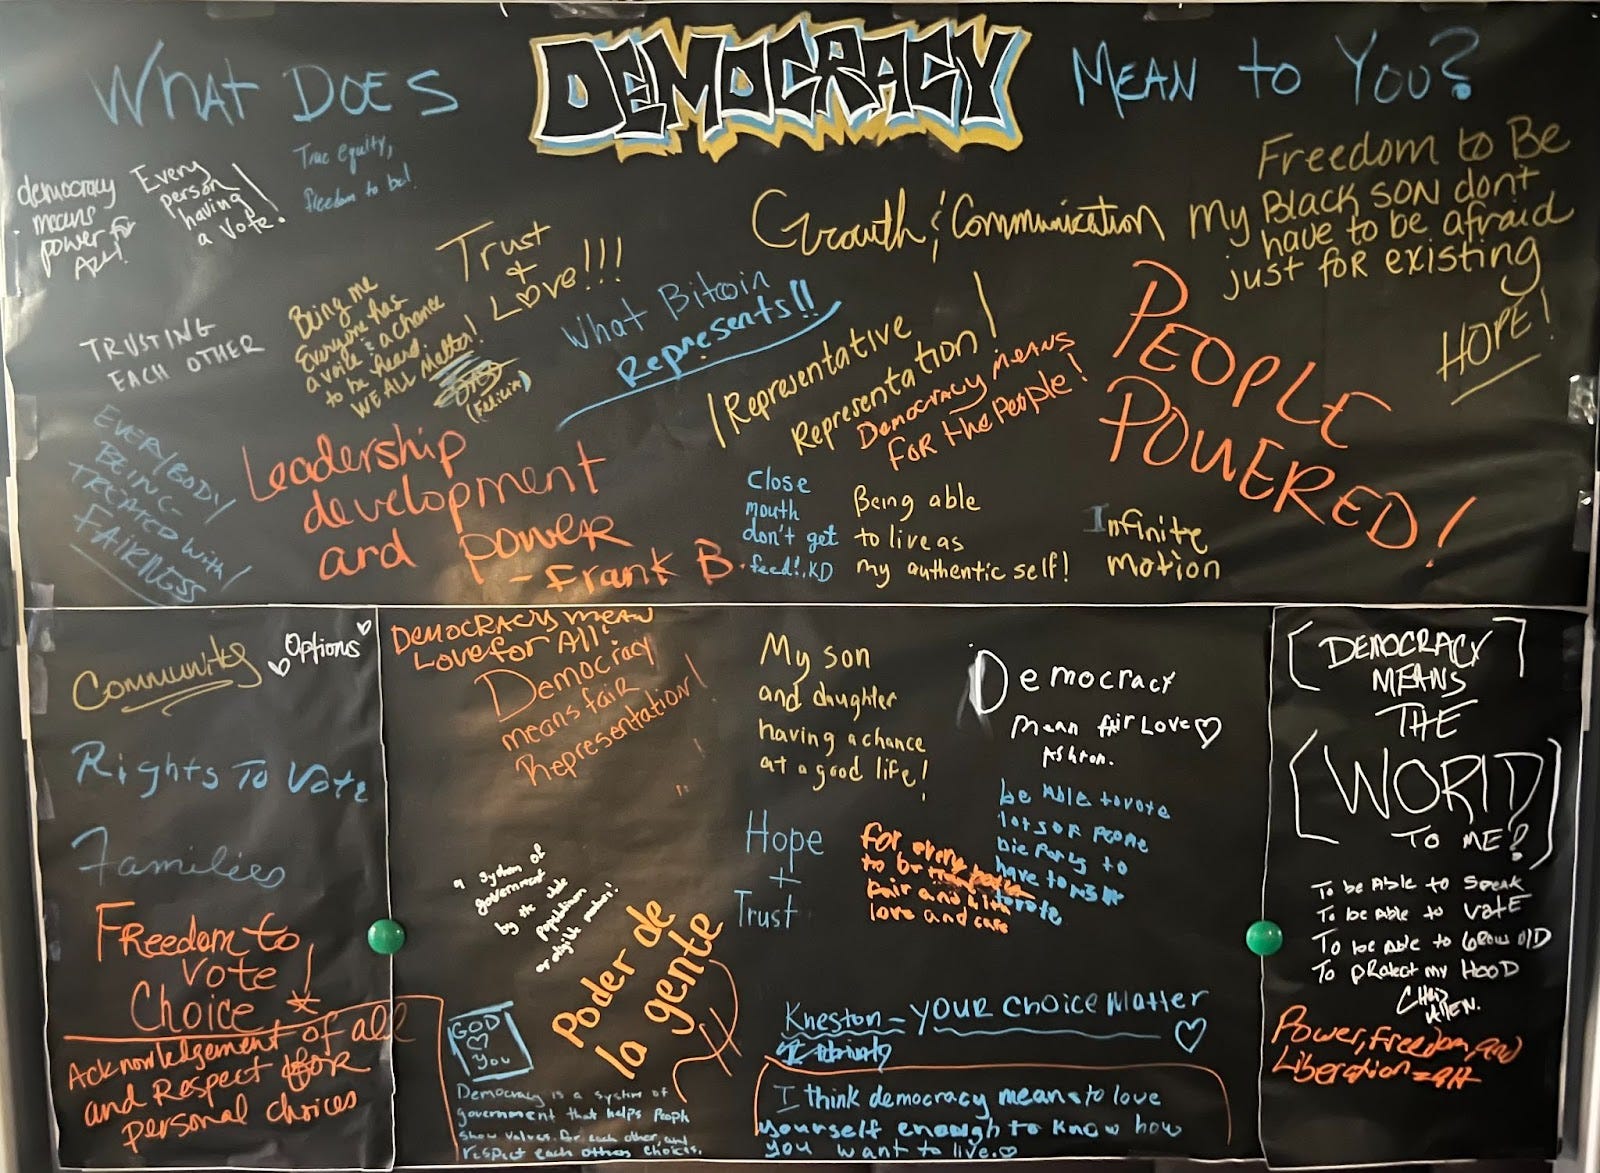 WHAT DOES DEMOCRACY MEAN TO YOU?
democracy
means
power for
ALL!
Every
person
having
a vote!
True equity,
freedom to be!
Trust
+
Love!!!
Growth & Communication
Freedom to Be
my Black SON don't
have to be afraid
just for existing
HOPE!
TRUSTING
EACH OTHER
Being me
Everyone has
a voice & a chance
to be heard.
WE ALL Matter!
(Felicia)
What Bitcoin
Represents!!
Representative
Representation!
Democracy means
FOR the People!
PEOPLE
POWERED!
EVERYBODY
BEING
TREATED with
FAIRNESS
Leadership
development
and power
- Frank B.
Close
mouth
don't get
feed!. KD
Being able
to live as
my authentic self!
Infinite
motion
Community
Options
Rights To Vote
Families
Freedom to
Vote
Choice
Acknowledgement of all
and Respect for
personal choices
Democracy mean
Love for All!
Democracy
means fair
Representation!
a system of
government
by the whole
population
or eligible members!
Poder de
la gente
GOD
♡
you
Democracy is a system of
government that helps People
show values for each other, and
respect each others choices.
My son
and daughter
having a chance
at a good life!
Hope
+
Trust
Democracy
mean fair Love ♡
Ashton.
be Able to vote
lots of People
die
to
have
to vote
for every
to be
fair and with
love and care
Kneston - YOUR Choice Matter
♡
I think democracy means to love
yourself enough to know how
you want to live. ♡
[DEMOCRACY
MEANS
THE
[WORLD
TO ME?]
To be Able to Speak
To be Able to VOTE
To be Able to Grow OlD
To protect my HOOD
Allen.
Power, Freedom, and
Liberation =